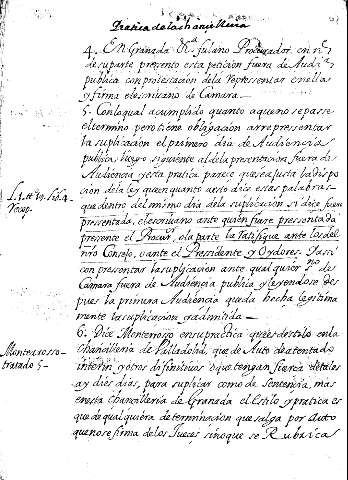 Pratica de la chancilleria
4. En Granada &.a fulano Procurador en n.e
de su parte presento esta peticion fuera de Audi.a
publica con protestación de la representar en ellas
y firma el escrivano de Camara.
5. Con lo qual a cumplido quanto a que no se passe
el termino pero tiene obligacion a representar
la suplicación el primero dia de Audiencia
publica, luego siguiente al de la presentación fuera de
Audiencia y esta pratica parece que se ajusta la dispo
cion de la ley que en quanto a esto dice estas palabras
L. 1. tt.o 19. lib. 4.
Recop.
que dentro del mismo dia de la suplicación si dice fuere
presentada, el escrivano ante quien fuere presentada
presente el Procur.r, o la parte la ratifique ante los del
nro Consejo, o ante el Presidente y Oydores. Y assi
con presentar la suplicación ante qualquier s.no de
Camara fuera de Audiencia publica y leyendose des
pues la primera Audiencia queda hecha legitima
mente la suplicación y admitida.
Monterroso
tratado 5
6. Dice Monterroso en su practica que es destilo en la
chancilleria de Valladolid, que de Auto de atentado
interin y otros difinitivos o que tengan fuerza de tales
ay diez dias, para suplicar como de sentencia, mas
en esta Chancilleria de Granada el Estilo y pratica es
que de qualquiera determinacion que salga por Auto
que no se firma de los Jueces sino que se Rubrica